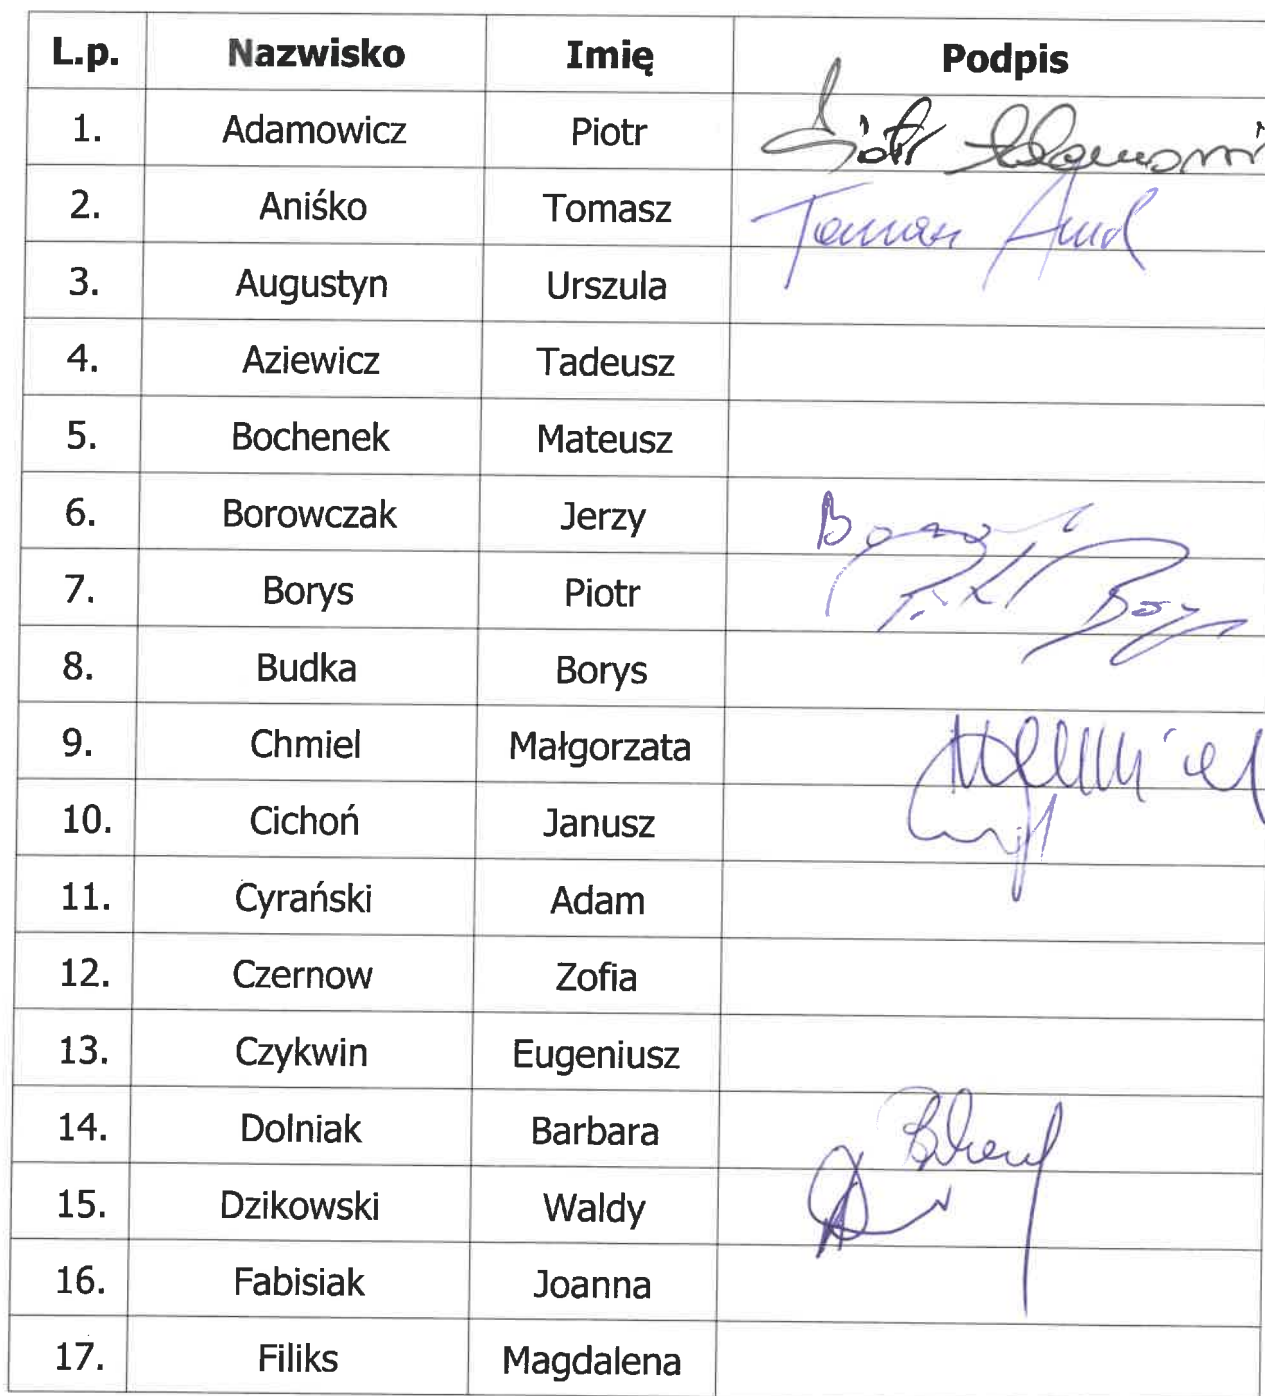 L.p. Nazwisko Imię Podpis
1. Adamowicz Piotr Piotr
2. Aniśko Tomasz Tomasz
3. Augustyn Urszula
4. Aziewicz Tadeusz
5. Bochenek Mateusz
6. Borowczak Jerzy
7. Borys Piotr
8. Budka Borys
9. Chmiel Małgorzata
10. Cichoń Janusz
11. Cyrański Adam
12. Czernow Zofia
13. Czykwin Eugeniusz
14. Dolniak Barbara
15. Dzikowski Waldy
16. Fabisiak Joanna
17. Filiks Magdalena